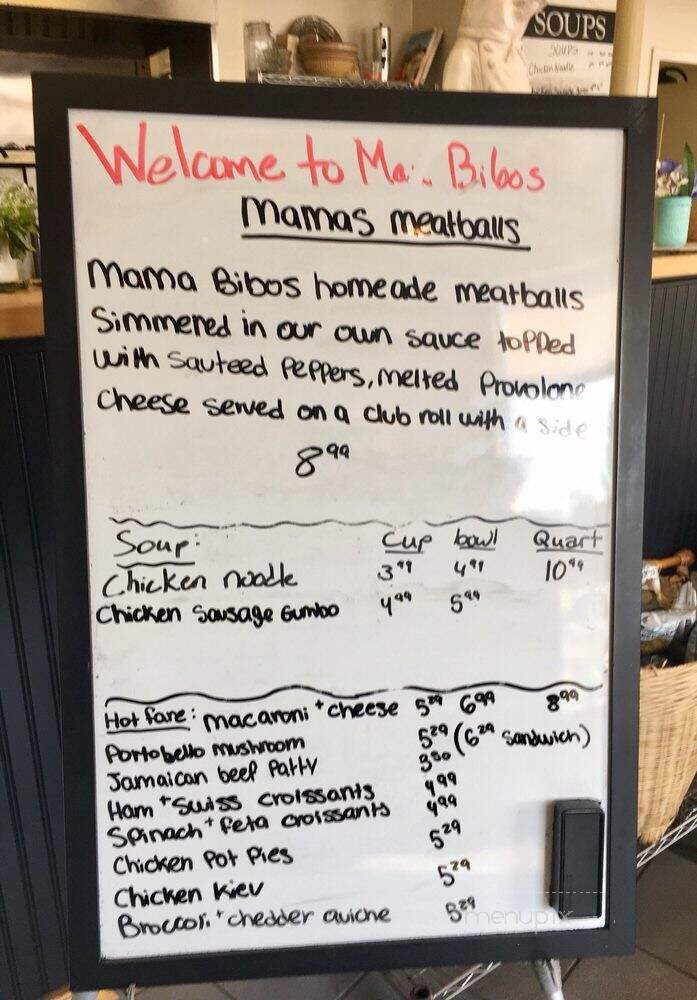 SOUPS
SOUPS
Chicken Noodle
Welcome to Ma.. Bibos
Mamas meatballs
Mama Bibos homeade meatballs
Simmered in our own sauce topped
with Sauteed Peppers, melted Provolone
Cheese served on a club roll with a side
8 99
Soup: Cup bowl Quart
Chicken noodle 3 99 4 99 10 99
Chicken Sausage Gumbo 4 99 5 99
Hot fare: macaroni + cheese 5 29 6 99 8 99
Portobello mushroom 5 29 (6 29 sandwich)
Jamaican beef Patty 3 50
Ham + Swiss croissants 4 99
Spinach + feta croissants 4 99
Chicken Pot Pies 5 29
Chicken Kiev 5 29
Broccoli + chedder quiche 5 29
menupix